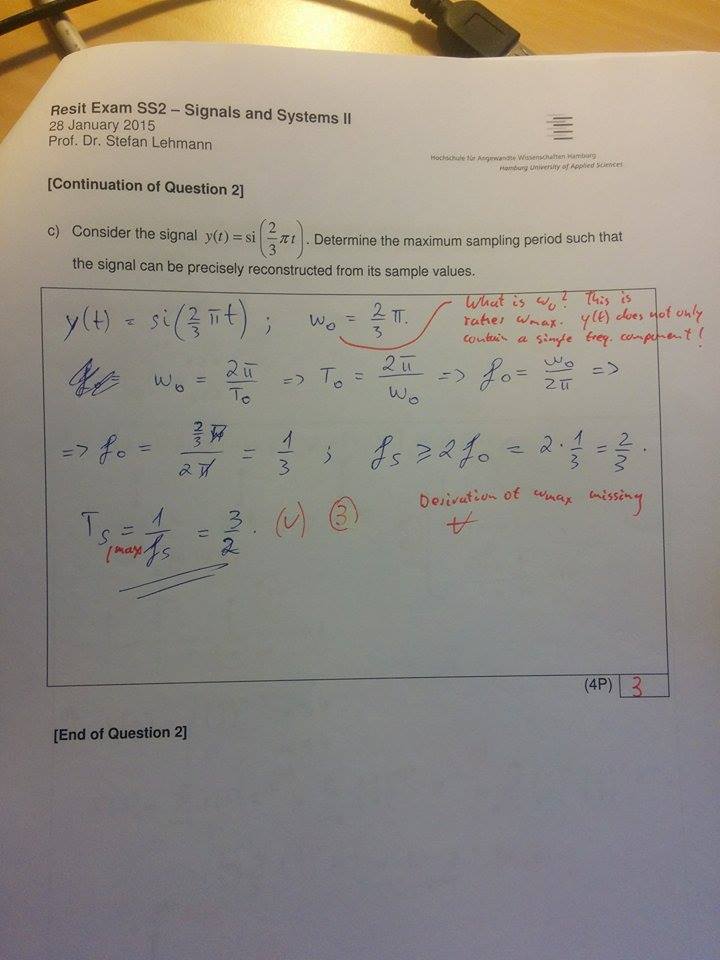 Resit Exam SS2 – Signals and Systems II
28 January 2015
Prof. Dr. Stefan Lehmann
Hochschule für Angewandte Wissenschaften Hamburg
Hamburg University of Applied Sciences
[Continuation of Question 2]
c) Consider the signal y(t) = si(2/3 πt). Determine the maximum sampling period such that
the signal can be precisely reconstructed from its sample values.
y(t) = si(2/3 πt) ; ω₀ = 2/3 π.
What is ω₀? This is
rather ωmax. y(t) does not only
contain a single freq. component!
ω₀ = 2π/T₀ => T₀ = 2π/ω₀ => f₀ = ω₀/2π =>
=> f₀ = 2/3 π / 2π = 1/3 ; fs ≥ 2f₀ = 2·1/3 = 2/3.
Derivation of ωmax missing
Ts,max = 1/fs = 3/2. (v) 3
(4P) 3
[End of Question 2]